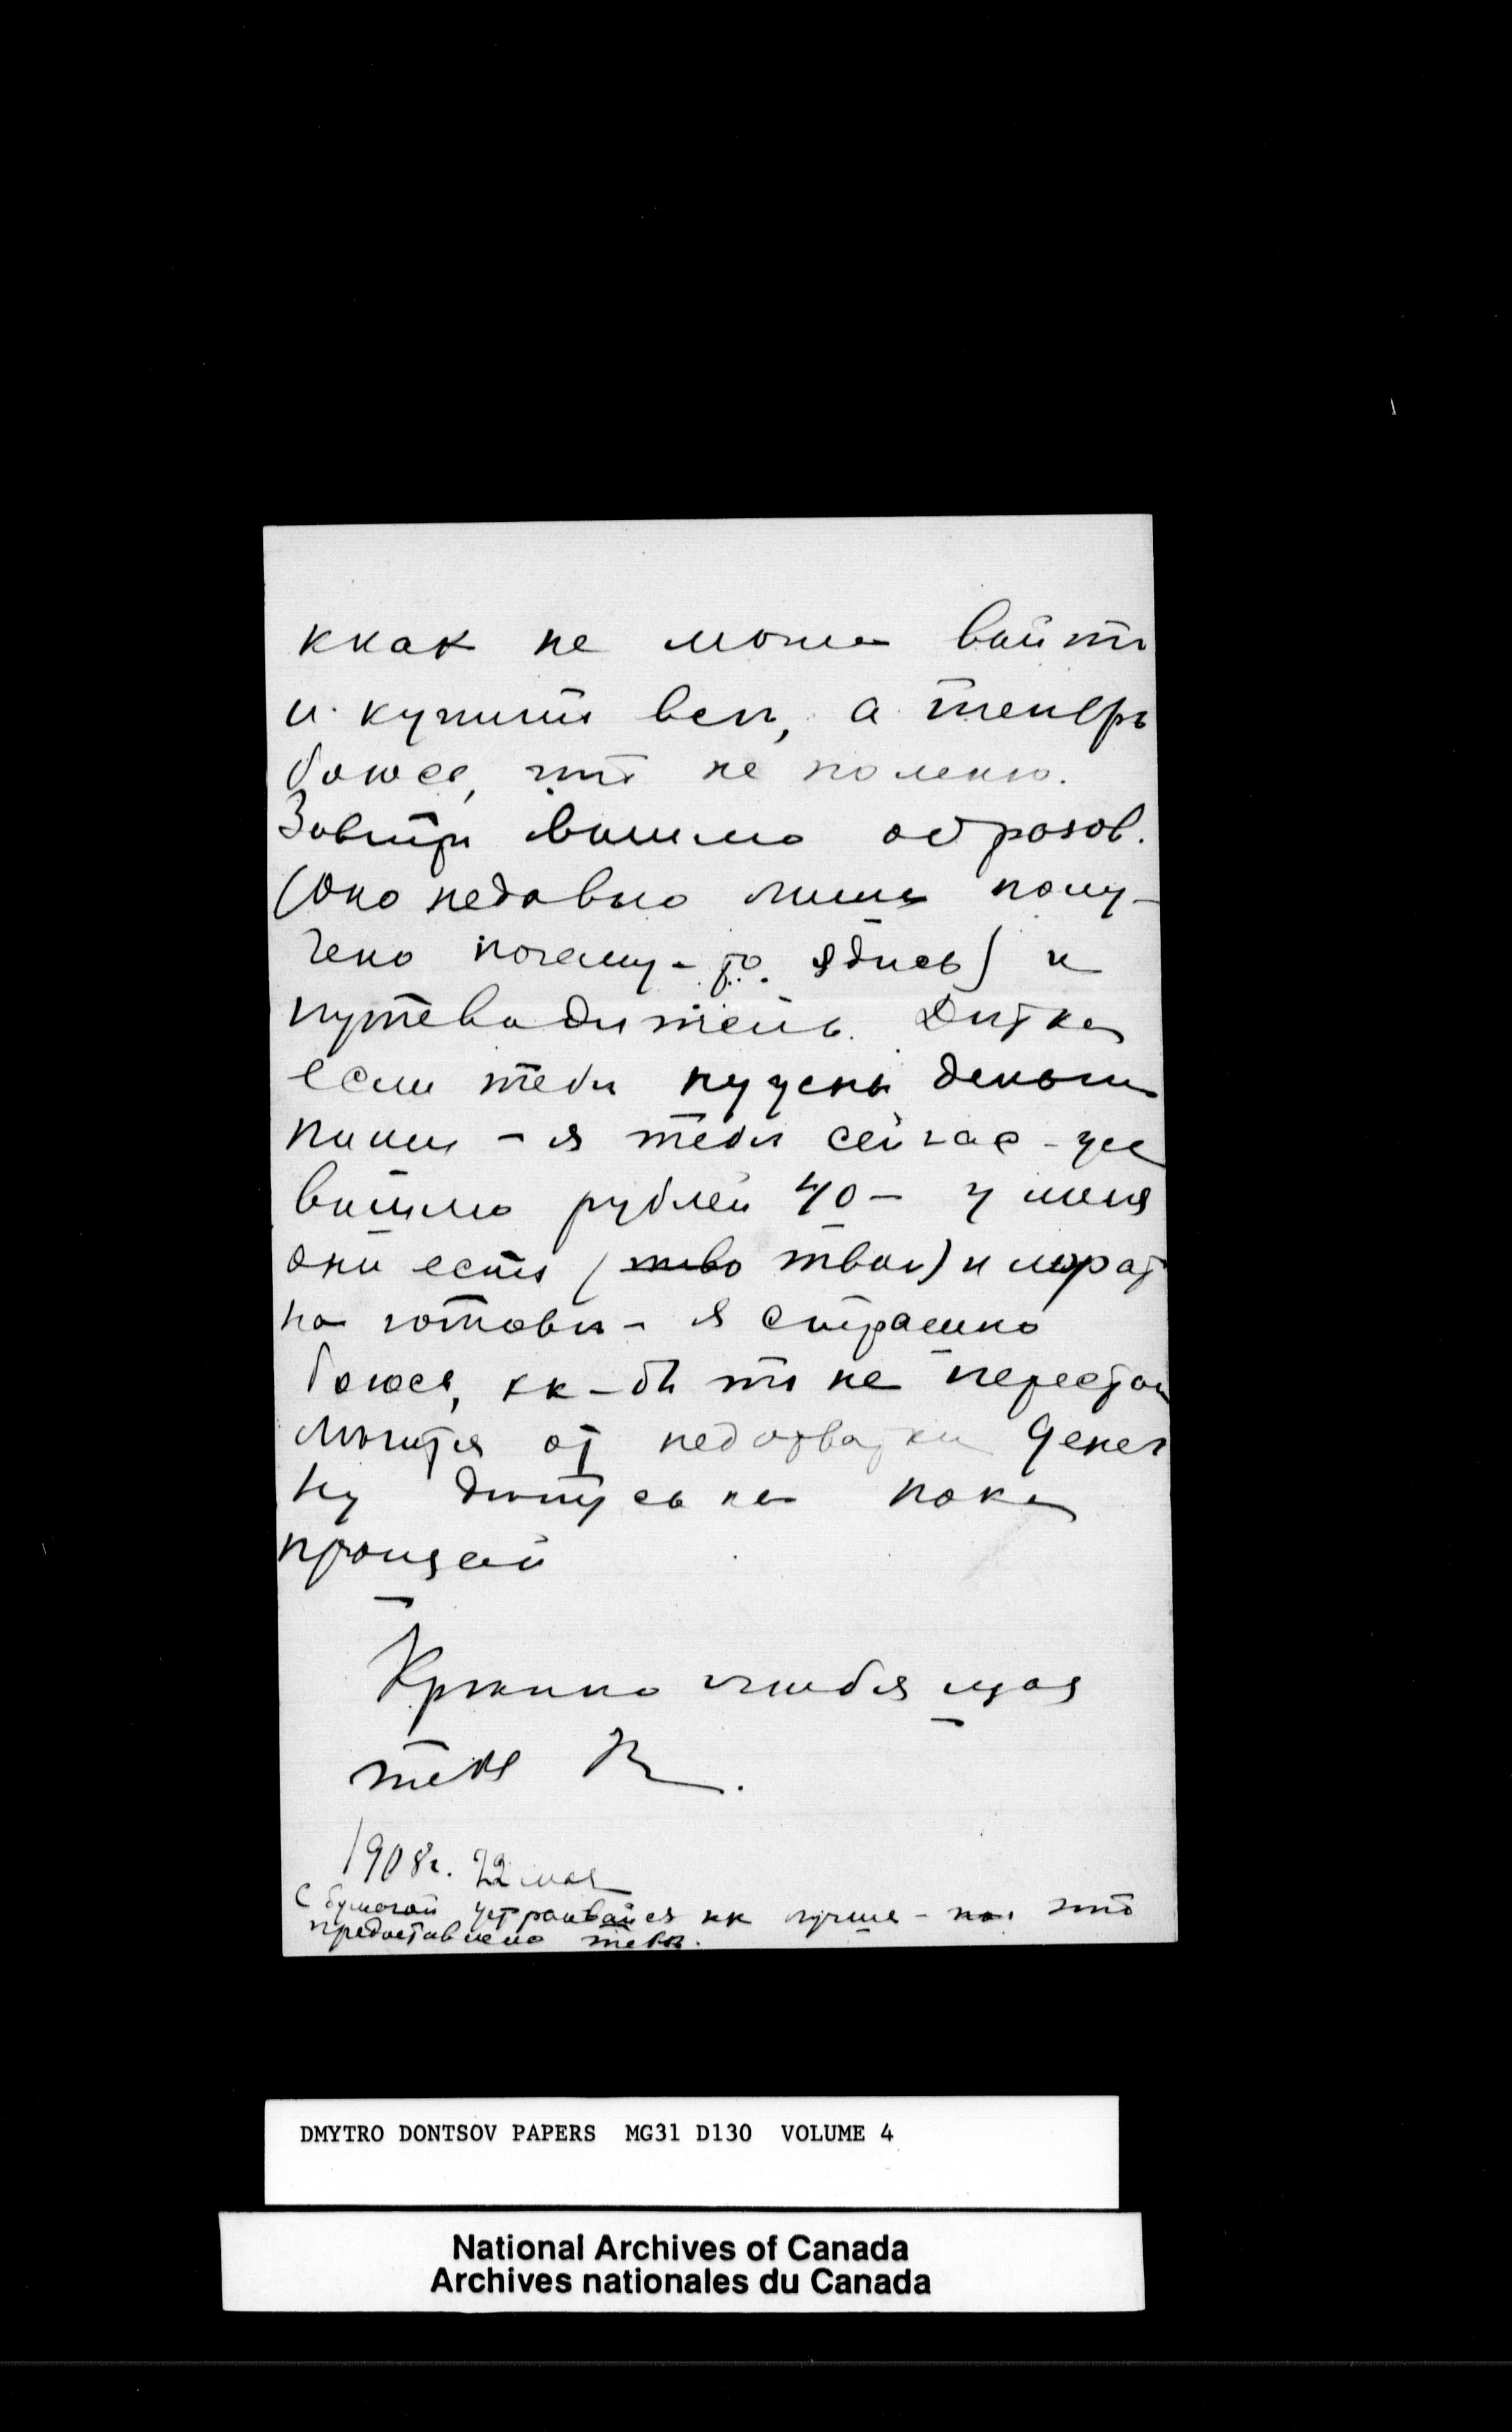 ккак не може выйти
и купити всп, а теперь
боюся, что не помешаю.
Завтра вышлю образов.
(Оно недавно лишь полу-
чено почему-то здесь) и
путеводитель. Дитка
если теби нужны деньги
пиши - я теби сейчас-же
вышлю рублей 40 - у меня
они есть (тво твои) и
на готови - я страшно
боюся, кк-бы ти не
от недохватки денег
Ну дитуська пока
прощай
Крипко любящая
тебя
1908г. 22 мая
С бумагой устраивайся кк лучше - это
предоставлено теби.
DMYTRO DONTSOV PAPERS MG31 D130 VOLUME 4
National Archives of Canada
Archives nationales du Canada